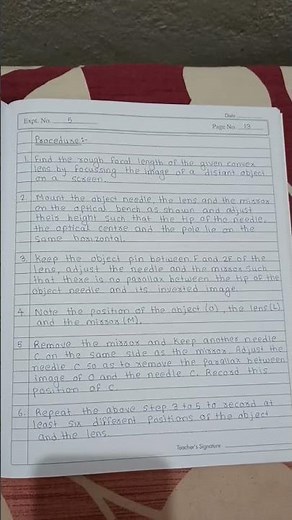 Date
Expt. No. 5
Page No. 19
Procedure:-
1. Find the rough focal length of the given convex
lens by focussing the image of a distant object
on a screen.
2. Mount the object needle, the lens and the mirror
on the optical bench as shown and adjust
their height such that the tip of the needle,
the optical centre and the pole lie on the
same horizontal.
3. Keep the object pin between F and 2F of the
lens, adjust the needle and the mirror such
that there is no parallax between the tip of the
object needle and its inverted image.
4. Note the position of the object (O), the lens (L)
and the mirror (M).
5. Remove the mirror and keep another needle
C on the same side as the mirror. Adjust the
needle C so as to remove the parallax between
image of O and the needle C. Record this
position of C.
6. Repeat the above step 3 to 5 to record at
least six different positions of the object
and the lens.
Teacher's Signature